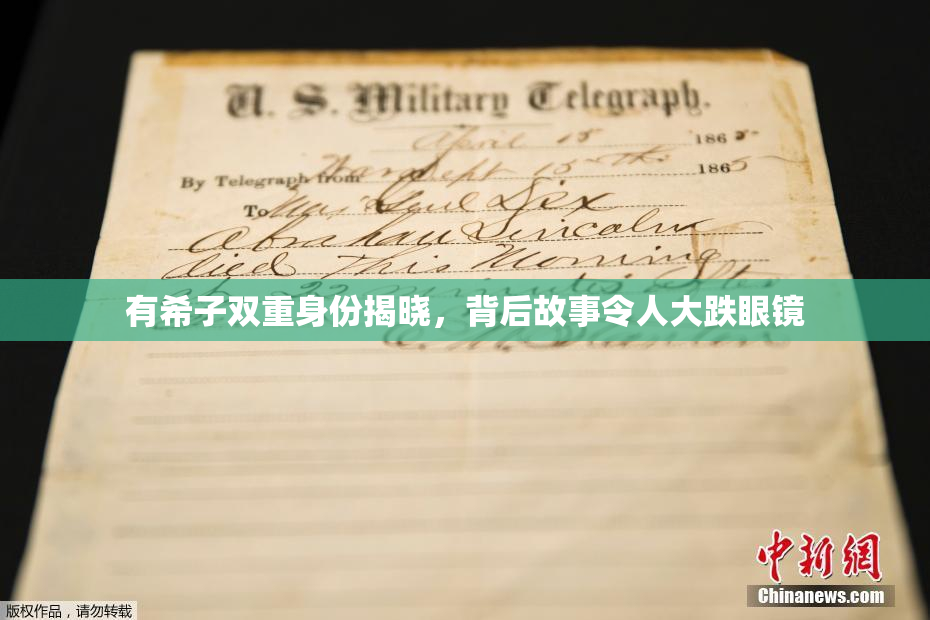 U. S. Military Telegraph.
April 15 1865
By Telegraph from War Dept 15th 1865
To Maj Genl Dix
Abraham Lincoln
died This Morning
at 22 minutes after
有希子双重身份揭晓，背后故事令人大跌眼镜
E. M. Stanton
中新网
Chinanews.com
版权作品，请勿转载